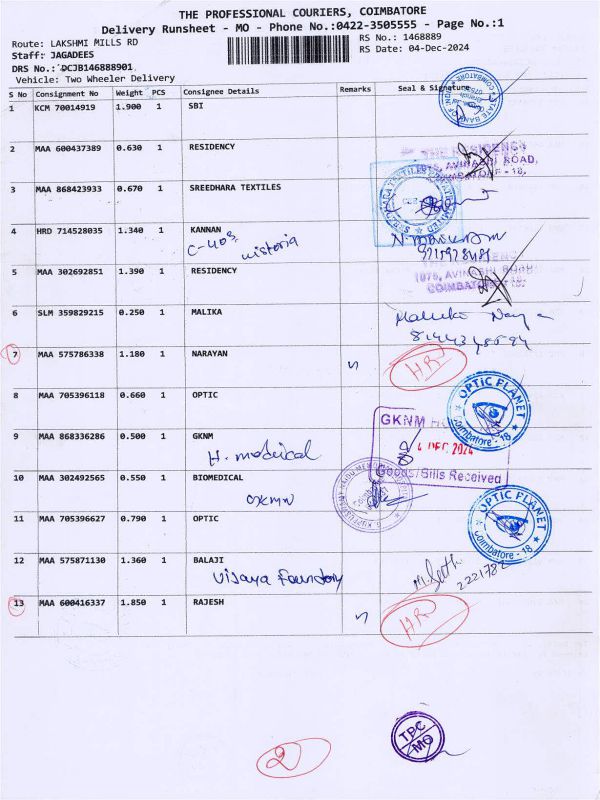 THE PROFESSIONAL COURIERS, COIMBATORE
Delivery Runsheet - MO - Phone No.:0422-3505555 - Page No.:1
Route: LAKSHMI MILLS RD
RS No.: 1468889
Staff: JAGADEES
RS Date: 04-Dec-2024
DRS No.: DCJB146888901
Vehicle: Two Wheeler Delivery
S No Consignment No Weight PCS Consignee Details Remarks Seal & Signature
1 KCM 70014919 1.900 1 SBI
STATE BANK OF COIMBATORE
2 MAA 600437389 0.630 1 RESIDENCY
THE RESIDENCY
AVINASHI ROAD,
COIMBATORE - 18.
3 MAA 868423933 0.670 1 SREEDHARA TEXTILES
SREEDHARA TEXTILES PRIVATE LIMITED
4 HRD 714528035 1.340 1 KANNAN
C-403 wistoria
5 MAA 302692851 1.390 1 RESIDENCY
1076, AVINASHI ROAD
COIMBATORE
6 SLM 359829215 0.250 1 MALIKA
7 MAA 575786338 1.180 1 NARAYAN
HR
8 MAA 705396118 0.660 1 OPTIC
OPTIC PLANET
Coimbatore - 18
9 MAA 868336286 0.500 1 GKNM
H. medical
GKNM
4 DEC 2024
Goods/Bills Received
10 MAA 302492565 0.550 1 BIOMEDICAL
GKMN
11 MAA 705396627 0.790 1 OPTIC
OPTIC PLANET
Coimbatore - 18
12 MAA 575871130 1.360 1 BALAJI
Vijaya Foundory
13 MAA 600416337 1.850 1 RAJESH
HR
TPC
MO
2